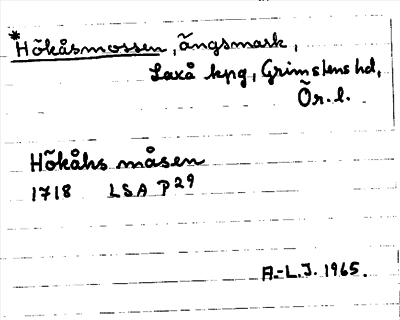 *Hökåsmossen, ängsmark,
Laxå kpg, Grimstens hd,
Ör. l.
Hökåhs måsen
1718 LSA P29
A.-L.J. 1965.